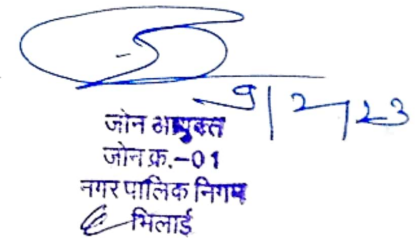 9/2/23
जोन आयुक्त
जोन क्र.-01
नगर पालिक निगम
भिलाई